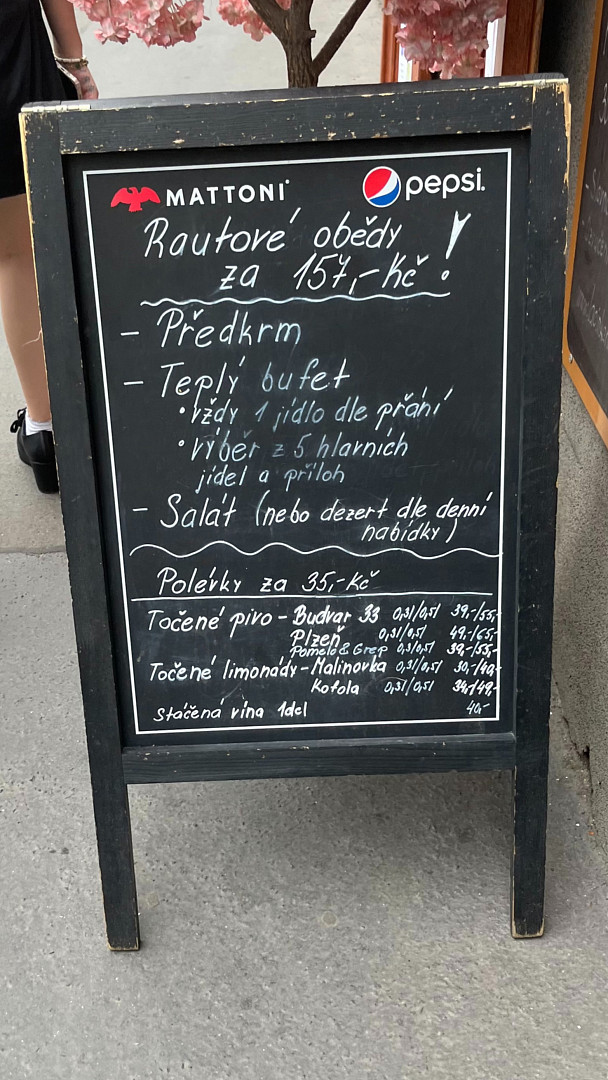 MATTONI
pepsi.
Rautové obědy
za 157,-Kč!
- Předkrm
- Teplý bufet
• vždy 1 jídlo dle přání
• výběr z 5 hlavních
jídel a příloh
- Salát (nebo dezert dle denní
nabídky)
Polévky za 35,-Kč
Točené pivo - Budvar 33 0,3l/0,5l 39,-/55,-
Plzeň 0,3l/0,5l 49,-/65,-
Pomelo & Grep 0,3/0,5l 39,-/55,-
Točené limonády - Malinovka 0,3l/0,5l 30,-/40,-
Kofola 0,3l/0,5l 34,-/49,-
Stáčená vína 1del 40,-